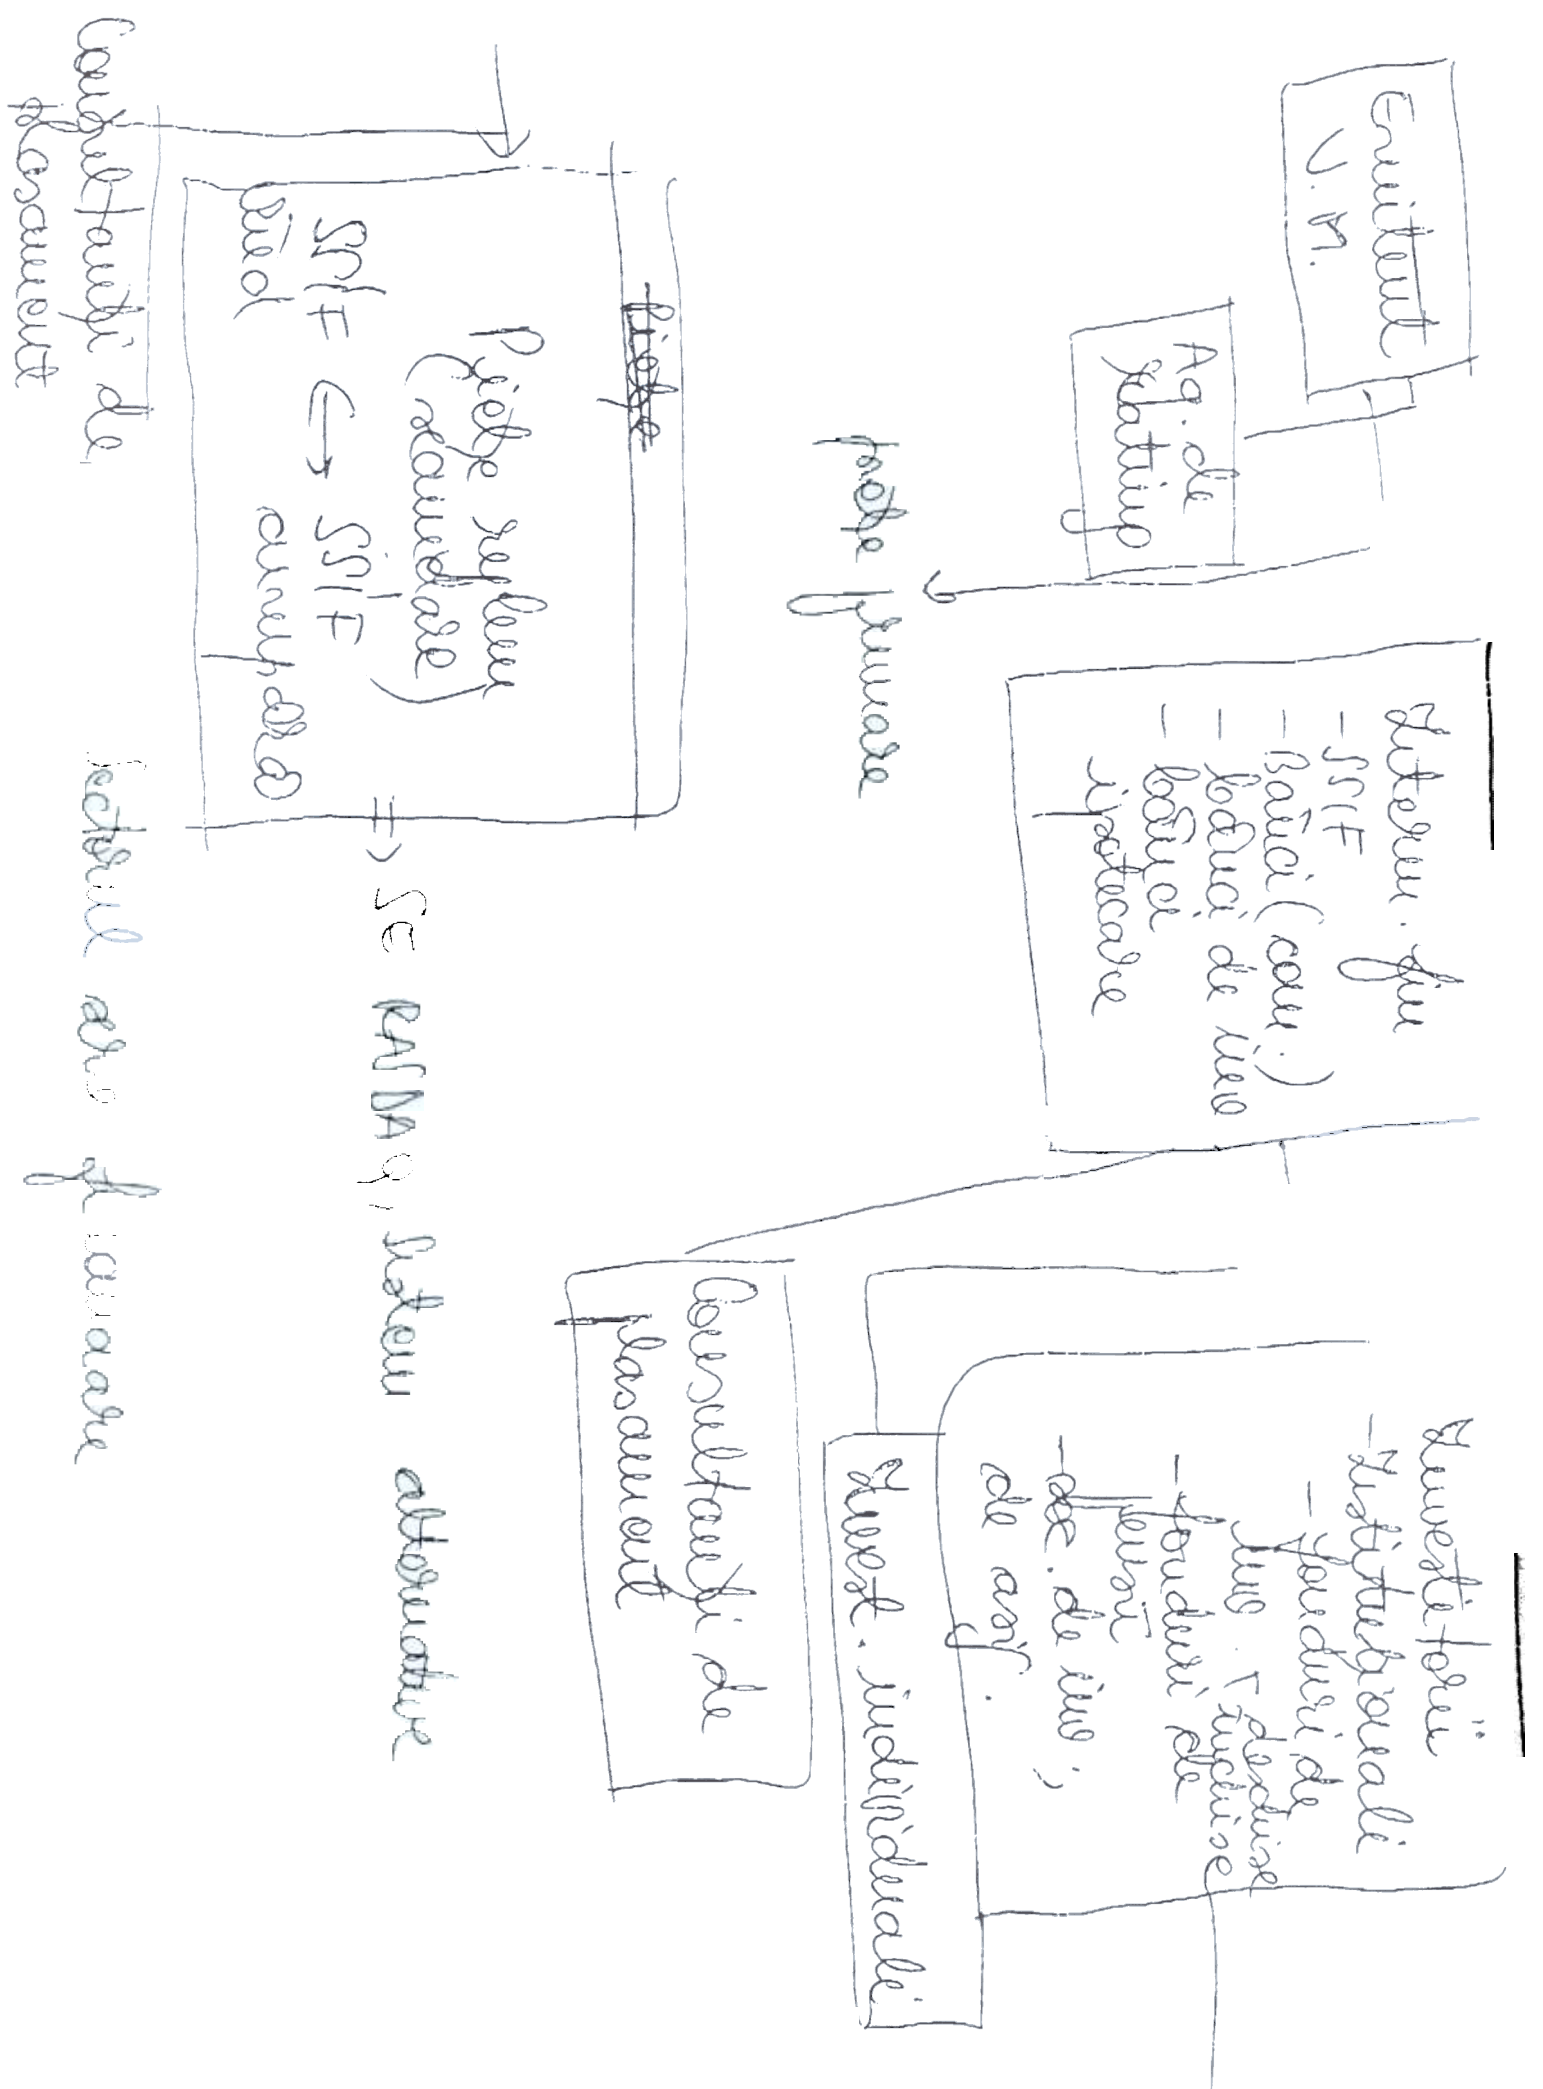 Emitent
V.M.
Ag. de
rating
Interm. fin
- SSIF
- Bănci (com.)
- bănci de inv
- bănci
ipotecare
Investitorii
- Instituționali
- fonduri de
inv. deschise
închise
- fonduri de
pensii
- soc. de inv;
de asig.
Invest. individuali
Consultanți de
plasament
piețe primare
piețe
Piețe reglem
(secundare)
SSIF ↔ SSIF
vând cumpără
⇒ SE RASDAQ, sistem alternative
Consultanți de
plasament
Sectorul